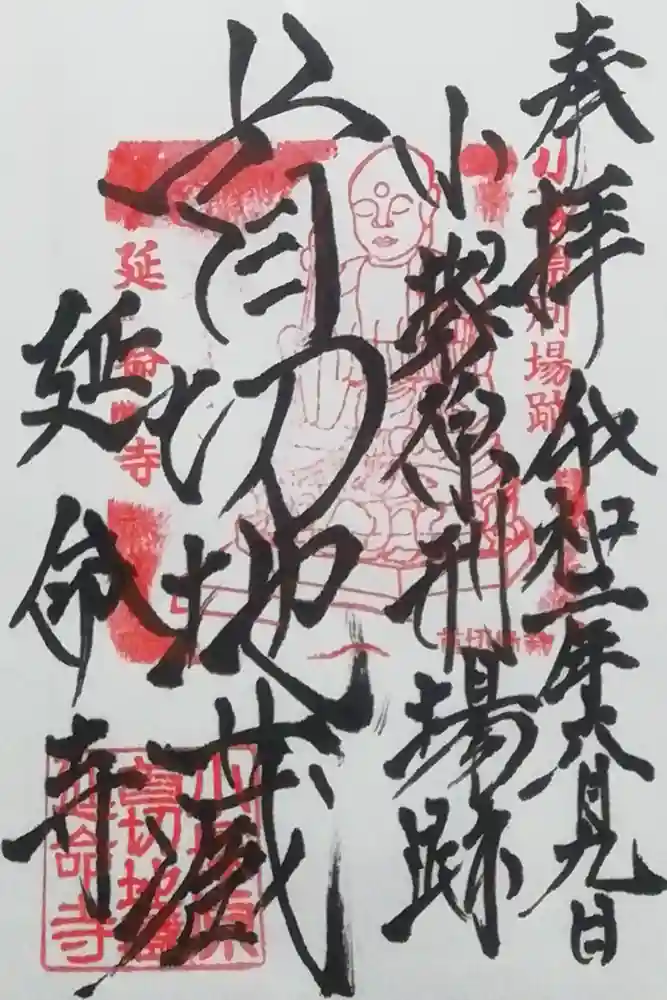 奉拝 令和二年六月九日
小塚原刑場跡
首切地蔵
延命寺
小塚原刑場跡
延命寺
首切地蔵
小塚原
首切地蔵
延命寺